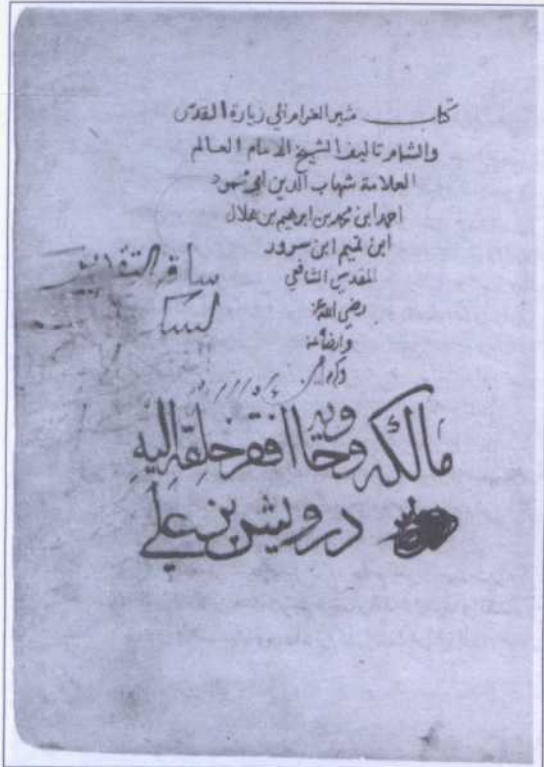 كتاب مثير الغرام الي زيارة القدس
والشام تاليف الشيخ الامام العالم
العلامة شهاب الدين ابي محمود
احمد ابن محمد بن ابرهيم بن هلال
ابن تميم ابن سرور
المقدسي الشافعي
رضي الله عنه
وارضاه
مالكه وحاويه افقر خلقه اليه
درويش بن علي